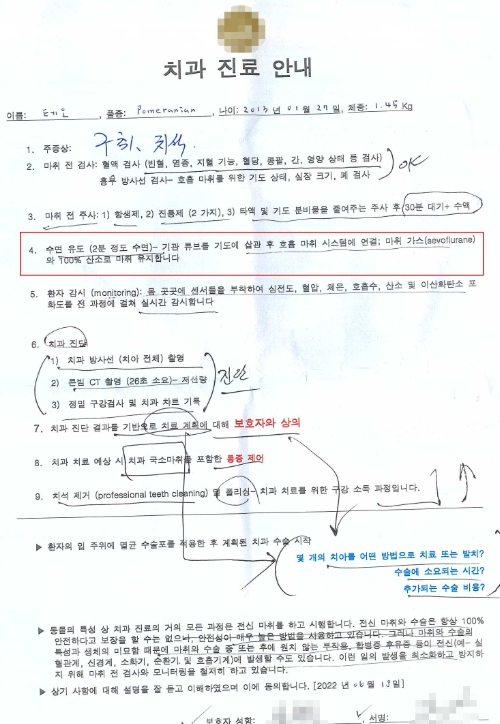 치과 진료 안내
이름: 테디, 품종: Pomeranian, 나이: 2013 년 01 월 27 일, 체중: 1.45 Kg
1. 주증상: 구취, 치석
2. 마취 전 검사: 혈액 검사 (빈혈, 염증, 지혈 기능, 혈당, 콩팥, 간, 영양 상태 등 검사)
흉부 방사선 검사– 호흡 마취를 위한 기도 상태, 심장 크기, 폐 검사
OK
3. 마취 전 주사: 1) 항생제, 2) 진통제 (2 가지), 3) 타액 및 기도 분비물을 줄여주는 주사 후 30분 대기+ 수액
4. 수면 유도 (2분 정도 수면)– 기관 튜브를 기도에 삽관 후 호흡 마취 시스템에 연결; 마취 가스(sevoflurane)
와 100% 산소로 마취 유지합니다
5. 환자 감시 (monitoring): 몸 곳곳에 센서들을 부착하여 심전도, 혈압, 체온, 호흡수, 산소 및 이산화탄소 포
화도를 전 과정에 걸쳐 실시간 감시합니다
6. 치과 진단
1) 치과 방사선 (치아 전체) 촬영
2) 콘빔 CT 촬영 (26초 소요)– 저선량
진단
3) 정밀 구강검사 및 치과 차트 기록
7. 치과 진단 결과를 기반으로 치료 계획에 대해 보호자와 상의
8. 치과 치료 예상 시 치과 국소마취를 포함한 통증 제어
9. 치석 제거 (professional teeth cleaning) 및 폴리싱– 치과 치료를 위한 구강 소독 과정입니다.
▶ 환자의 입 주위에 멸균 수술포를 적용한 후 계획된 치과 수술 시작
몇 개의 치아를 어떤 방법으로 치료 또는 발치?
수술에 소요되는 시간?
추가되는 수술 비용?
▶ 동물의 특성 상 치과 진료의 거의 모든 과정은 전신 마취를 하고 시행합니다. 전신 마취와 수술은 항상 100%
안전하다고 보장을 할 수는 없으나, 안전성이 매우 높은 방법을 사용하고 있습니다. 그러나 마취와 수술의
특성과 생체의 미묘함 때문에 마취와 수술 중 또는 후에 원치 않는 부작용, 합병증 후유증 등이 전신(예– 심
혈관계, 신경계, 소화기, 순환기 및 호흡기계)에 발생할 수도 있습니다. 이런 일의 발생을 최소화하고 방지하
지 위해 마취 전 검사와 모니터링을 철저히 하고 있습니다.
▶ 상기 사항에 대해 설명을 잘 듣고 이해하였으며 이에 동의합니다. [2022 년 06 월 18 일]
보호자 성함: , 서명: